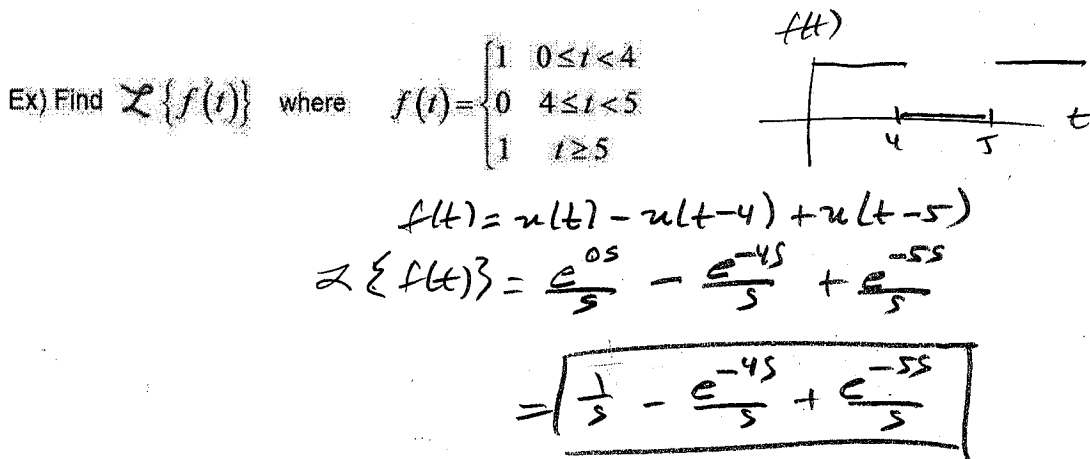 f(t)
Ex) Find ℒ{f(t)} where f(t) = {1 0 ≤ t < 4
0 4 ≤ t < 5
1 t ≥ 5
4 5 t
f(t) = u(t) - u(t-4) + u(t-5)
ℒ{f(t)} = e^{0s}/s - e^{-4s}/s + e^{-5s}/s
= 1/s - e^{-4s}/s + e^{-5s}/s